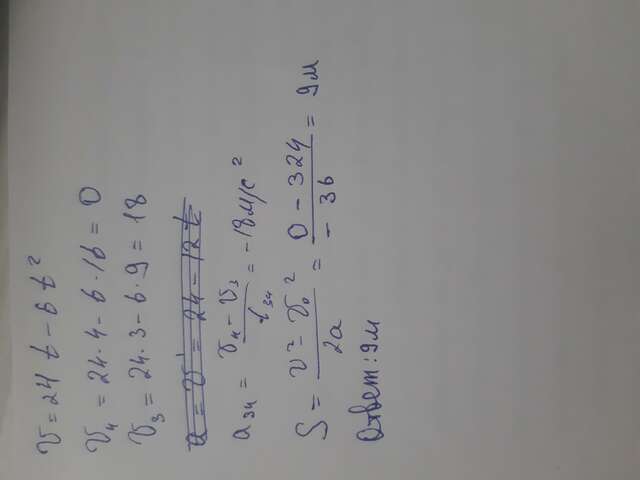 v = 24t - 6t²
v₄ = 24·4 - 6·16 = 0
v₃ = 24·3 - 6·9 = 18
a = v' = 24 - 12t
a₃₄ = (v₄ - v₃)/t₃₄ = -18 м/с²
S = (v² - v₀²)/2a = (0 - 324)/(-36) = 9м
Ответ: 9м